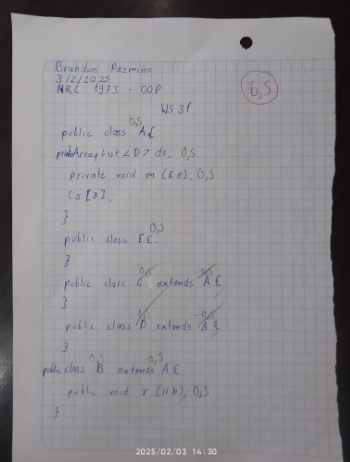 Brandon Pazmiño
3/2/2025
NRC 1973 - OOP
6,5
WS 31
0,5
public class A{
ArrayList <D> ds; 0,5
private void m (E e), 0,5
C s [3],
}
0,5
public class E {
}
0,5 -0,5
public class C extends A {
}
-0,5
public class D extends A {
}
0,5 0,5
public class B extends A {
public void r (H h), 0,5
}
2025/02/03 14:30